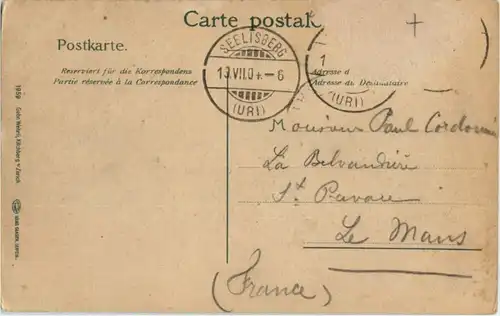 Carte postale
Postkarte.
SEELISBERG
13.VII.04.–6
(URI)
1
(URI)
Reserviert für die Korrespondenz
Partie réservée à la Correspondance
Adresse d
Adresse du Destinataire
Monsieur Paul Cordonnier
La
St Pavace
Le Mans
(France)
1959 Gebr. Wehrli, Kilchberg Zürich